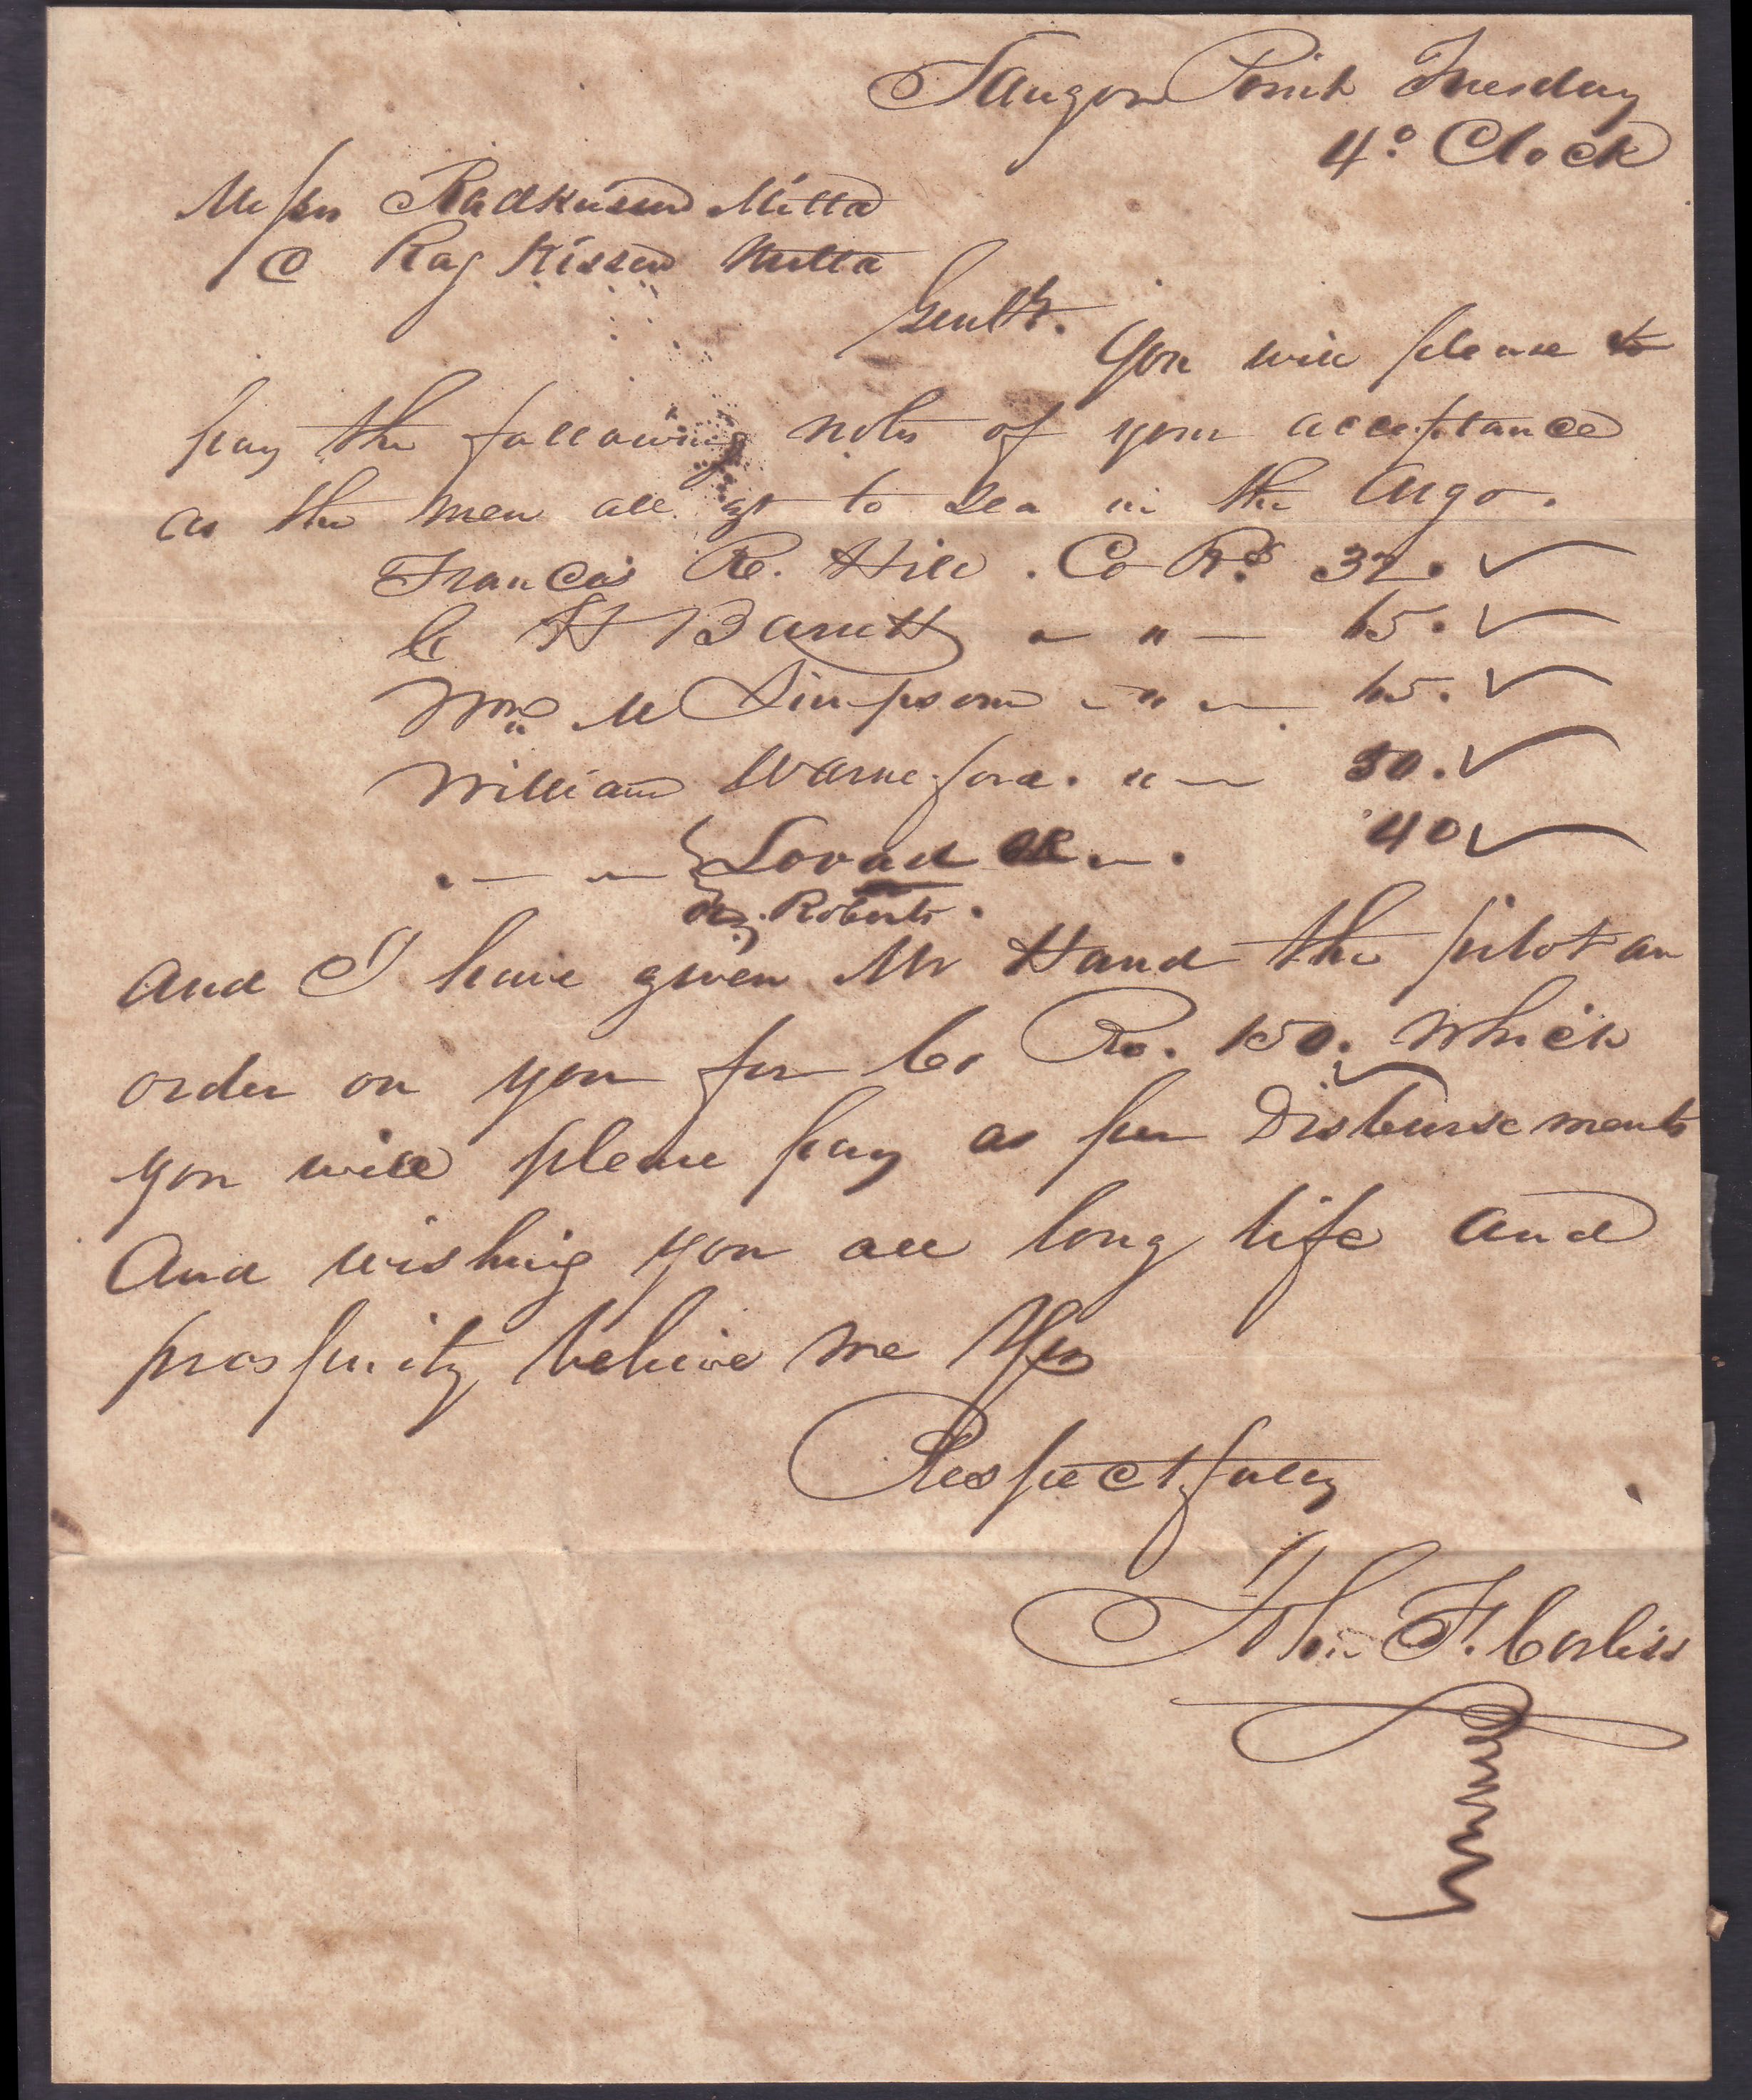 Saugor Point Tuesday
4 o Clock
Messrs Radkissen Mitta
& Raj Kissen Mitta
Gentn. You will please to
pay the following notes of your acceptance
as the men all go to sea in the Argo.
Francois R. Hill . Co Rs 32.
C H Barrett " 65.
Wm M Simpson " 65.
William Warneford. " 30.
Lovad 40
Roberts.
and I have given Mr Hand the pilot an
order on you for Co Rs. 150. which
you will please pay as per Disbursements
And wishing you all long life and
prosperity believe me Yrs
Respectfully
John F. Corliss